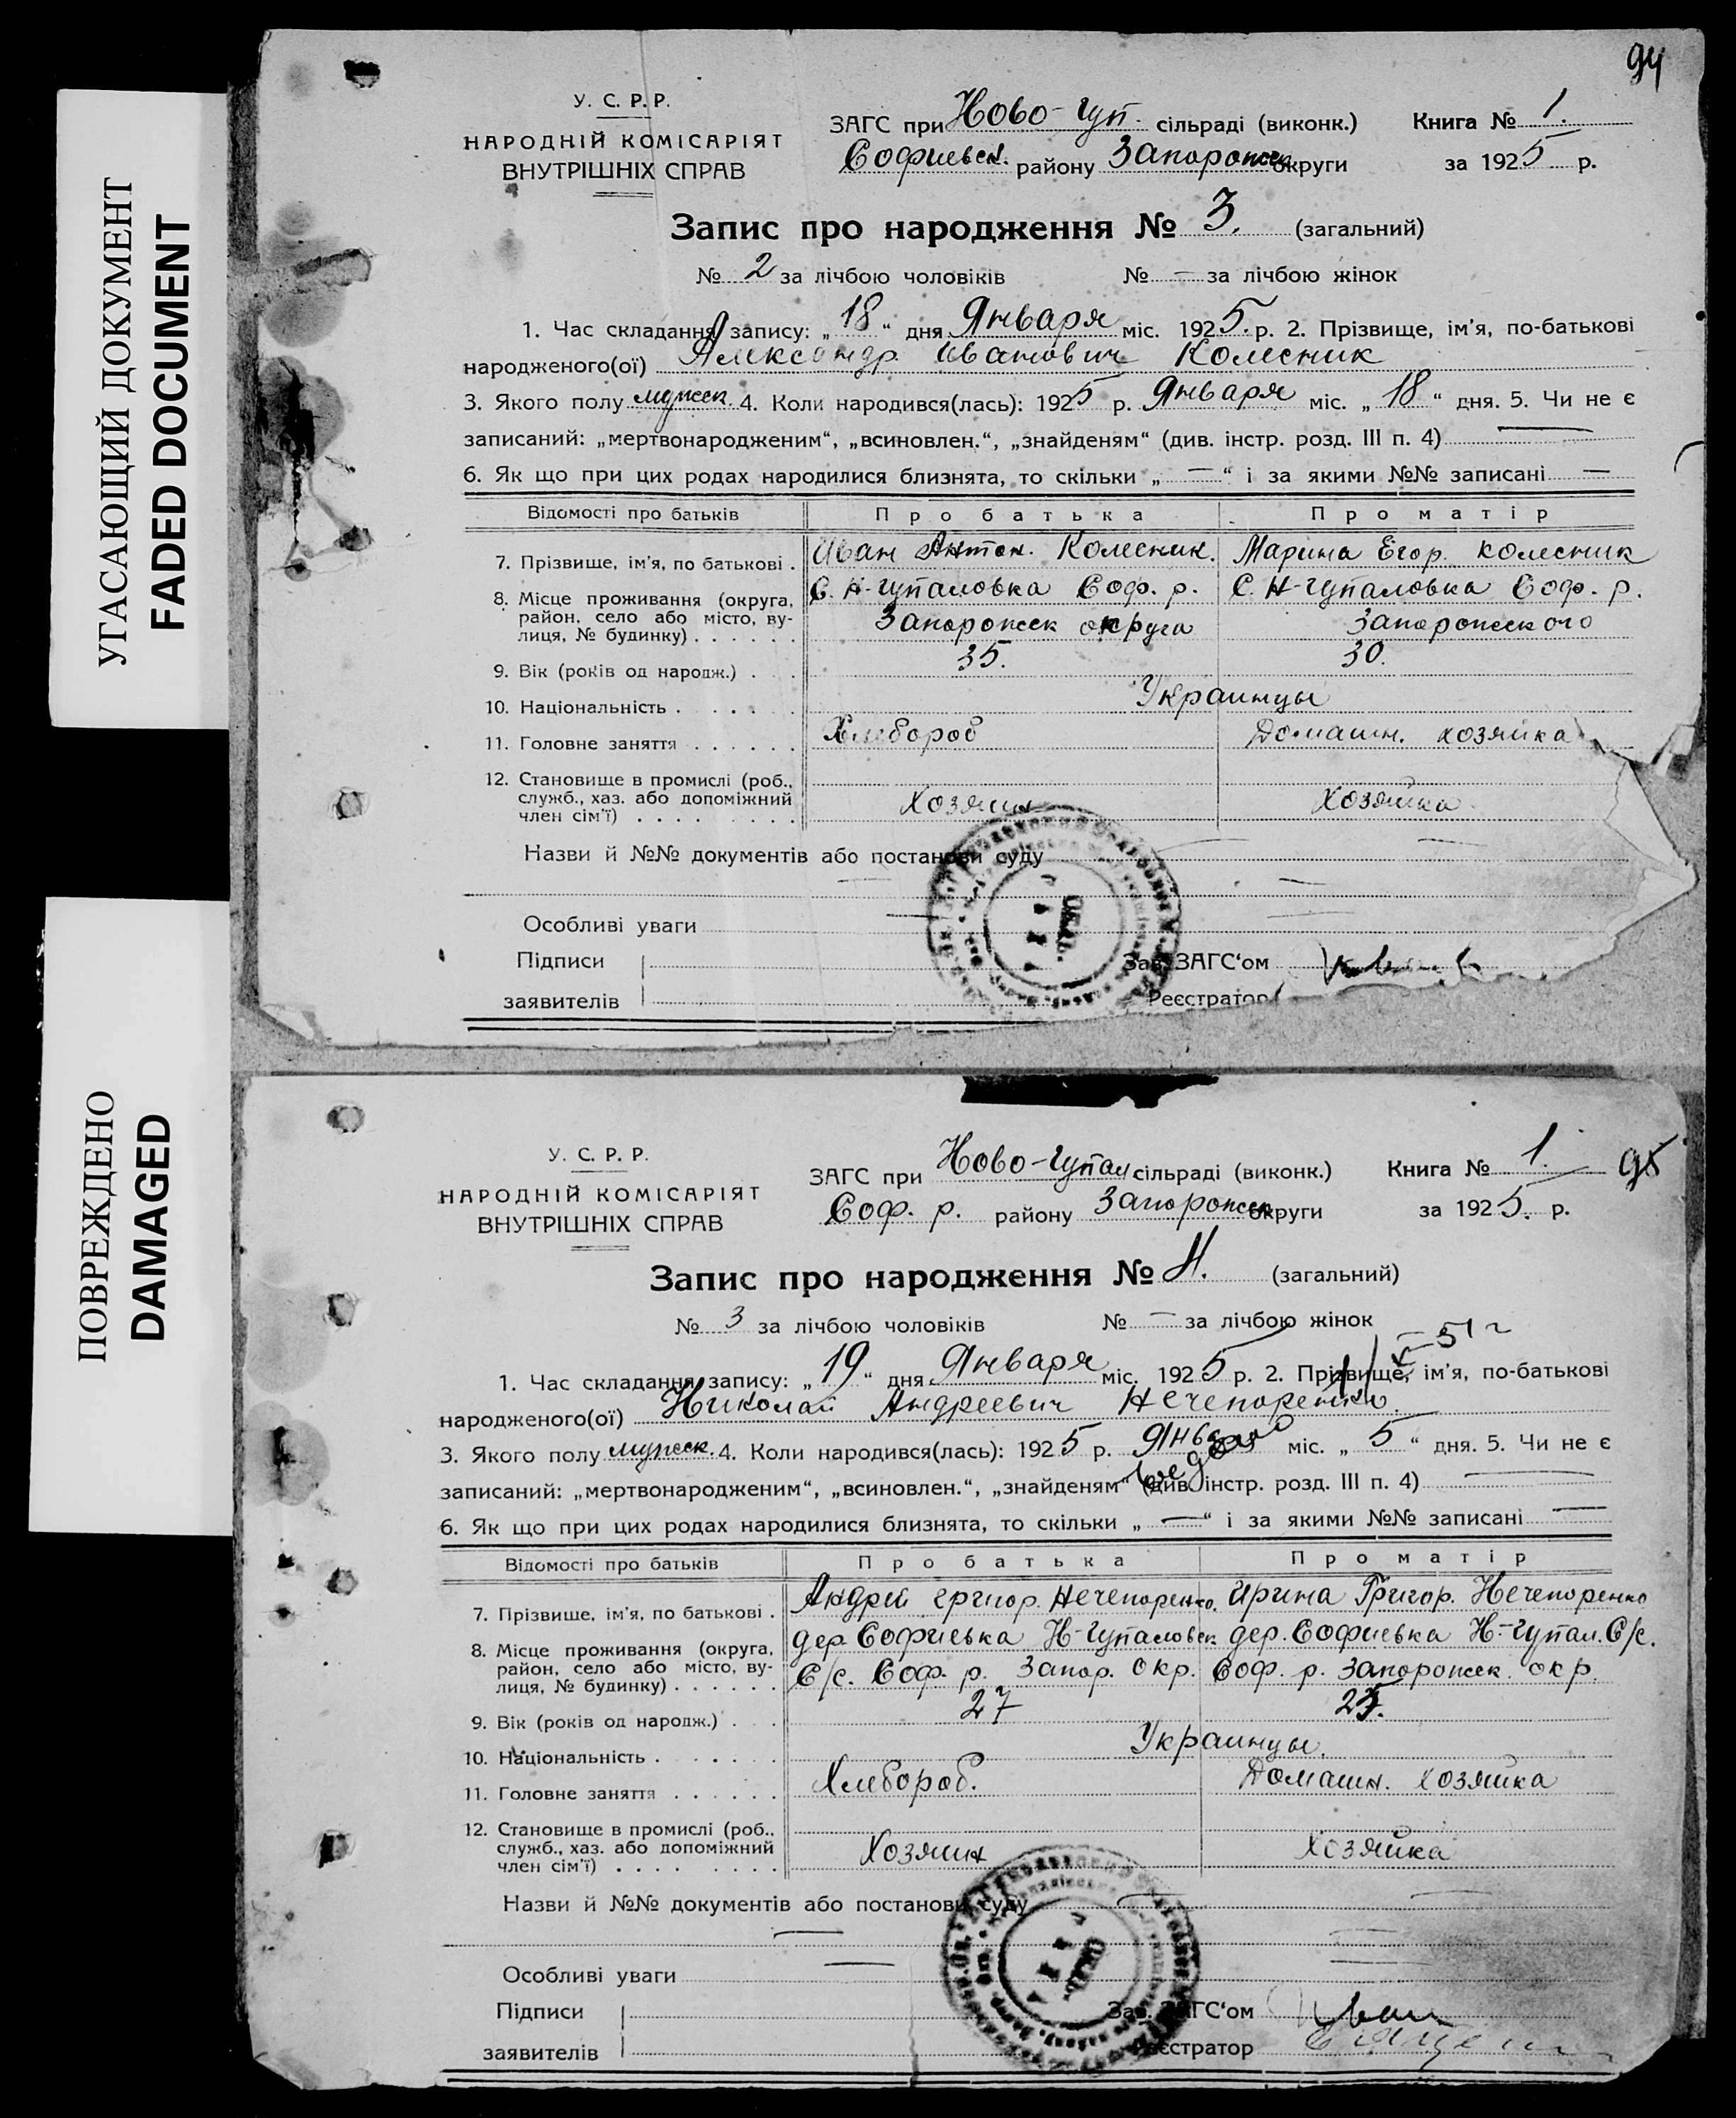 УГАСАЮЩИЙ ДОКУМЕНТ
FADED DOCUMENT
ПОВРЕЖДЕНО
DAMAGED
94
У. С. Р. Р.
НАРОДНІЙ КОМІСАРІЯТ
ВНУТРІШНІХ СПРАВ
ЗАГС при Ново-Чуп. сільраді (виконк.) Книга № 1.
Софиевск. району Запорожск округи за 1925 р.
Запис про народження № 3. (загальний)
№ 2 за лічбою чоловіків № — за лічбою жінок
1. Час складання запису: „ 18 “ дня Января міс. 1925. р. 2. Прізвище, ім’я, по-батькові
народженого(ої) Александр Иванович Колесник
3. Якого полу мужск. 4. Коли народився(лась): 1925 р. Января міс. „ 18 “ дня. 5. Чи не є
записаний: „мертвонародженим“, „всиновлен.“, „знайденям“ (див. інстр. розд. III п. 4) —
6. Як що при цих родах народилися близнята, то скільки „ — “ і за якими №№ записані —
Відомості про батьків Про батька Про матір
7. Прізвище, ім’я, по батькові . Иван Антон. Колесник. Марина Егор. Колесник
8. Місце проживання (округа, С. Н-Чупаловка Соф. р. С. Н-Чупаловка Соф. р.
район, село або місто, ву-
лиця, № будинку) . . . . . Запорожск округа Запорожского
9. Вік (років од народж.) . . . 35. 30.
10. Національність . . . . . Украинцы
11. Головне заняття . . . . . . Хлебороб Домашн. хозяйка
12. Становище в промислі (роб.,
служб., хаз. або допоміжний
член сім’ї) . . . . . . . . Хозяин Хозяйка
Назви й №№ документів або постанови суду —
Особливі уваги —
Підписи Зав. ЗАГС‘ом
заявителів Реєстратор
95
У. С. Р. Р.
НАРОДНІЙ КОМІСАРІЯТ
ВНУТРІШНІХ СПРАВ
ЗАГС при Ново-Чупал сільраді (виконк.) Книга № 1.
Соф. р. району Запорожск округи за 1925. р.
Запис про народження № 4. (загальний)
№ 3 за лічбою чоловіків № — за лічбою жінок
1. Час складання запису: „ 19 “ дня Января міс. 1925 р. 2. Прізвище, ім’я, по-батькові
народженого(ої) Николай Андреевич Нечепоренко.
3. Якого полу мужск. 4. Коли народився(лась): 1925 р. міс. „ 5 “ дня. 5. Чи не є
записаний: „мертвонародженим“, „всиновлен.“, „знайденям“ (див. інстр. розд. III п. 4) —
6. Як що при цих родах народилися близнята, то скільки „ — “ і за якими №№ записані —
Відомості про батьків Про батька Про матір
7. Прізвище, ім’я, по батькові . Андрей Григор. Нечепоренко. Ирина Григор. Нечепоренко
8. Місце проживання (округа, дер. Софиевка Н-Чупаловск дер. Софиевка Н-Чупал. С/с.
район, село або місто, ву-
лиця, № будинку) . . . . . . С/с. Соф. р. Запор. окр. Соф. р. Запорожск. окр.
9. Вік (років од народж.) . . . 27
10. Національність . . . . . . Украинцы.
11. Головне заняття . . . . . . Хлебороб. Домашн. хозяйка
12. Становище в промислі (роб.,
служб., хаз. або допоміжний
член сім’ї) . . . . . . . . Хозяин Хозяйка
Назви й №№ документів або постанови суду —
Особливі уваги —
Підписи Зав. ЗАГС‘ом
заявителів Реєстратор